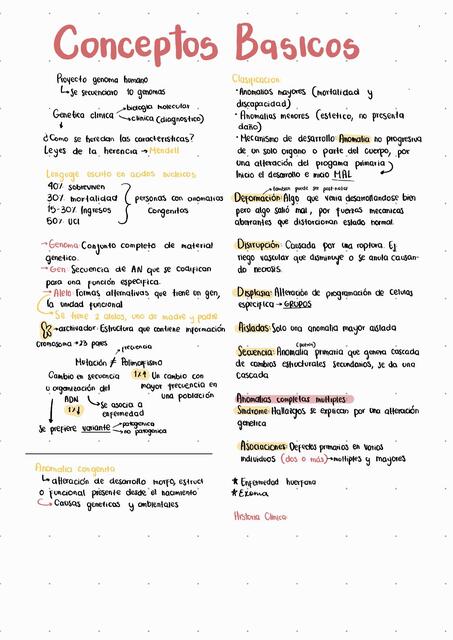 Conceptos Basicos
Proyecto genoma humano
↳ Se secuenciaro 10 genomas
Genetica clinica
biologia molecular
clinica (diagnostico)
¿Como se heredan las caracteristicas?
Leyes de la herencia → Mendell
Lenguaje escrito en acidos nucleicos
40% sobreviven
30% mortalidad
15-30% Ingresos
50% UCI
personas con anomalias
congenitas
→ Genoma Conjunto completo de material
genetico.
→ Gen: Secuencia de AN que se codifican
para una función especifica.
→ Alelo Formas alternativas que tiene un gen,
la unidad funcional
→ Se tiene 2 alelos, uno de madre y padre
→ archivador: Estructura que contiene información
cromosoma → 23 pares
frecuencia
Mutación ≠ Polimorfismo
Cambio en secuencia
u organización del
ADN
1%↑
Un cambio con
mayor frecuencia en
una población
1%↓
Se asocia a
enfermedad
Se prefiere variante
patogenica
no patogenica
Anomalia congenita
↳ alteración de desarrollo morfo, estruct
o funcional presente desde el nacimiento
↳ Causas geneticas y ambientales
Clasificación
· Anomalias mayores (mortalidad y
discapacidad)
· Anomalias menores (estetico, no presenta
daño)
· Mecanismo de desarrollo Anomalia no progresiva
de un solo organo o parte del cuerpo, por
una alteración del progama primaria
Inicio el desarrollo e inicio MAL
tambien puede ser post-natal
Deformación: Algo que venia desarrollandose bien
pero algo salio mal, por fuerzas mecanicas
aberrantes que distorsionan estado normal.
Disrupción: Causada por una ruptura. Ej
riego vascular que disminuye o se anula causan-
do necrosis.
Displasia: Alteración de programación de celulas
especifica → GRUPOS
Aisladas: Solo una anomalia mayor aislada
(potter)
Secuencia: Anomalia primaria que genera cascada
de cambios estructurales secundarios, se da una
cascada
Anomalias completas multiples
Sindrome: Hallazgos se explican por una alteración
genetica
Asociaciones: Defectos primarios en varios
individuos (dos o más) → multiples y mayores
* Enfermedad huerfana
* Exoma
Historia Clinica